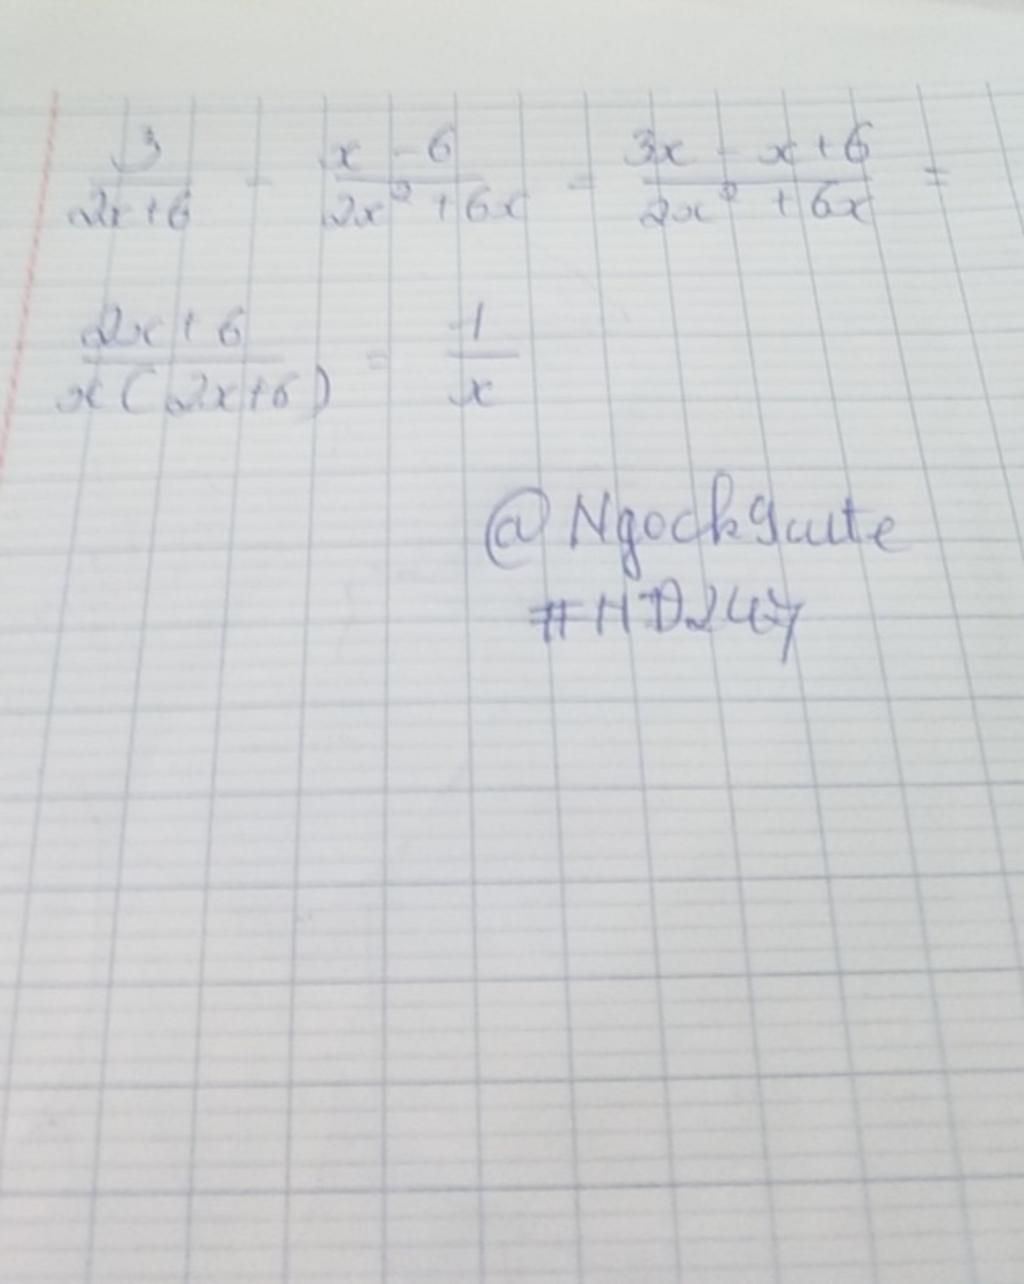 3/(2x+6) - (x-6)/(2x²+6x) = (3x-x+6)/(2x²+6x) =
(2x+6)/(x(2x+6)) = 1/x
@Ngockgute
#HD247